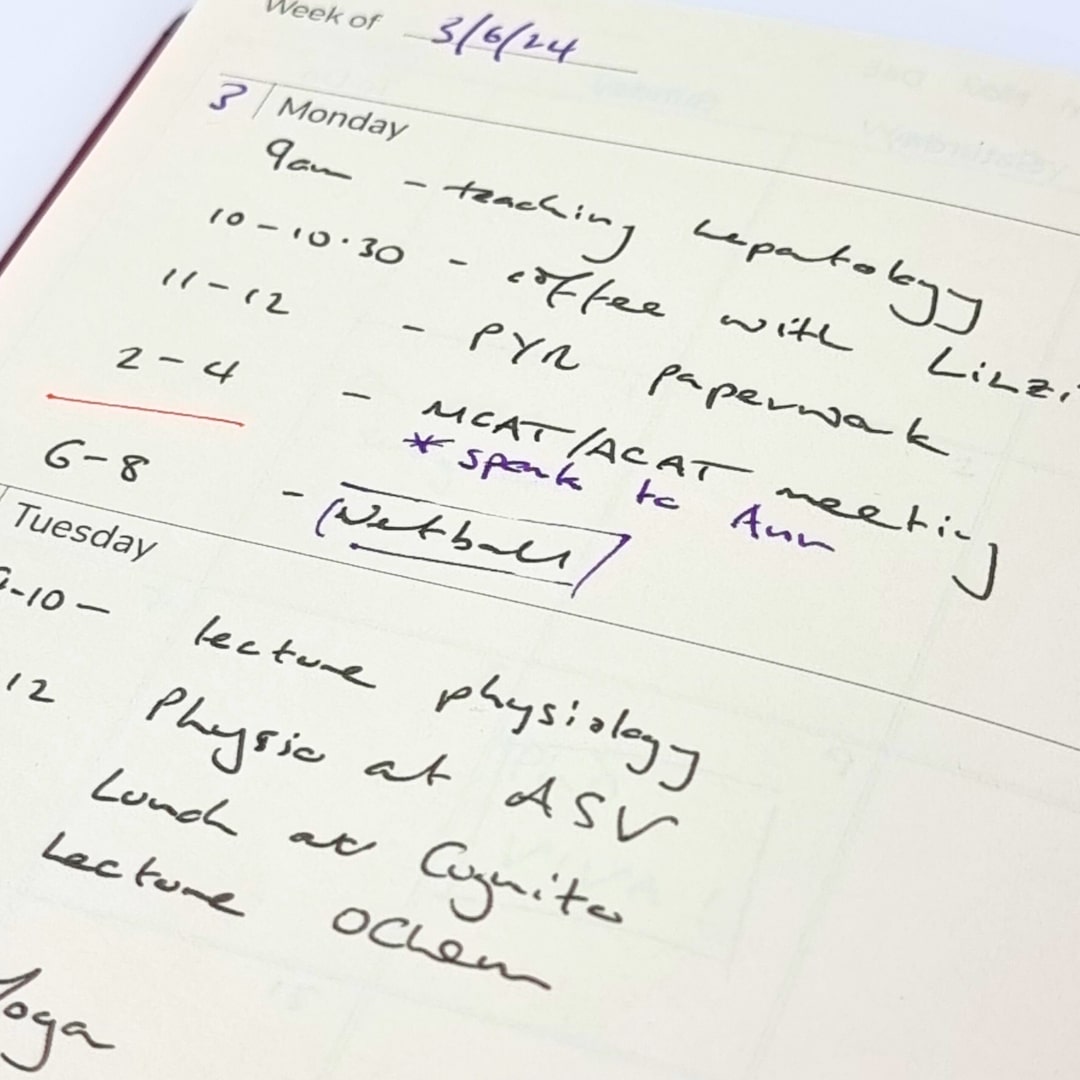 Week of 3/6/24
3 Monday
9am - teaching hepatology
10-10.30 - coffee with Linzi
11-12 - PYR paperwork
2-4 - MCAT/ACAT meeting
* speak to Ann
6-8 - Netball
Tuesday
9-10 - lecture physiology
12 Physio at ASV
Lunch at Cognito
Lecture OChem
Yoga